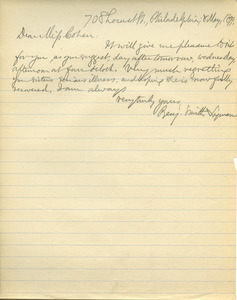 708 Locust St., Philadelphia, 8 May, 1899.
Dear Miss Cohen:
It will give me pleasure to sit
for you, as you suggest, day after tomorrow, Wednesday
afternoon at four o'clock. Very much regretting
your sister's illness, and hoping she is now fully
recovered, I am always
very truly yours,
Benj. Smith Lyman